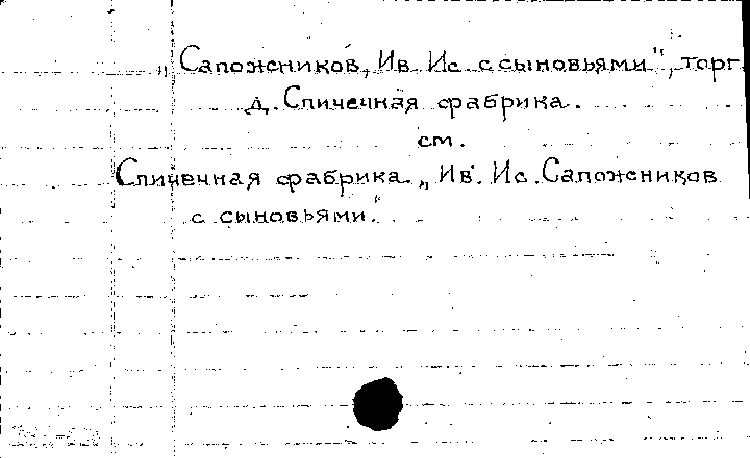 „Сапожников, Ив. Ис. с сыновьями", торг.
д. Спичечная фабрика.
см.
Спичечная фабрика „Ив. Ис. Сапожников
с сыновьями"